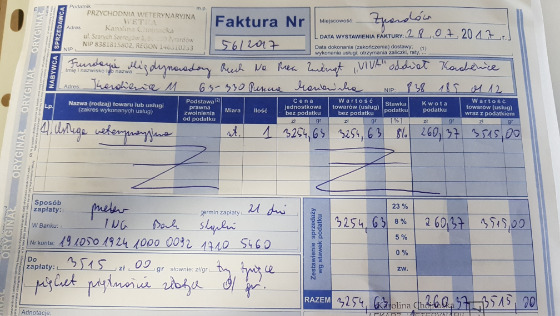 ORYGINAŁ
SPRZEDAWCA
PRZYCHODNIA WETERYNARYJNA
Faktura Nr
56/2017
Miejscowość Żyrardów
DATA WYSTAWIENIA FAKTURY 28.07.2017r.
Data dokonania (zakończenia) dostawy;
NABYWCA
Fundacja Międzynarodowy Ruch Na Rzecz Zwierząt „VIVA” oddział Korabiewice
Imię i nazwisko/nazwa
Adres
NIP
Lp.
Nazwa (rodzaj) towaru lub usługi
(zakres wykonanych usług)
Podstawa prawna zwolnienia od podatku
Miara
Ilość
Cena jednostkowa bez podatku
Wartość towarów (usług) bez podatku
Stawka podatku
Kwota podatku
Wartość towarów (usług) wraz z podatkiem
zł gr zł gr [%] zł gr zł gr
1. Usługa weterynaryjna szt. 1 3254,63 3254,63 8% 260,37 3515,00
Sposób zapłaty: przelew termin zapłaty: 21 dni
W Banku: ING Bank Śląski
Nr konta: 19 1050 1924 1000 0092 1710 5460
Do zapłaty: 3515 zł 00 gr słownie: zł/gr trzy tysiące
pięćset piętnaście złotych 0/ gr.
Zestawienie sprzedaży wg. stawek podatku
23 %
3254,63 8 % 260,37 3515,00
5 %
0 %
zw.
RAZEM 3254,63 260,37 3515,00
Adnotacje